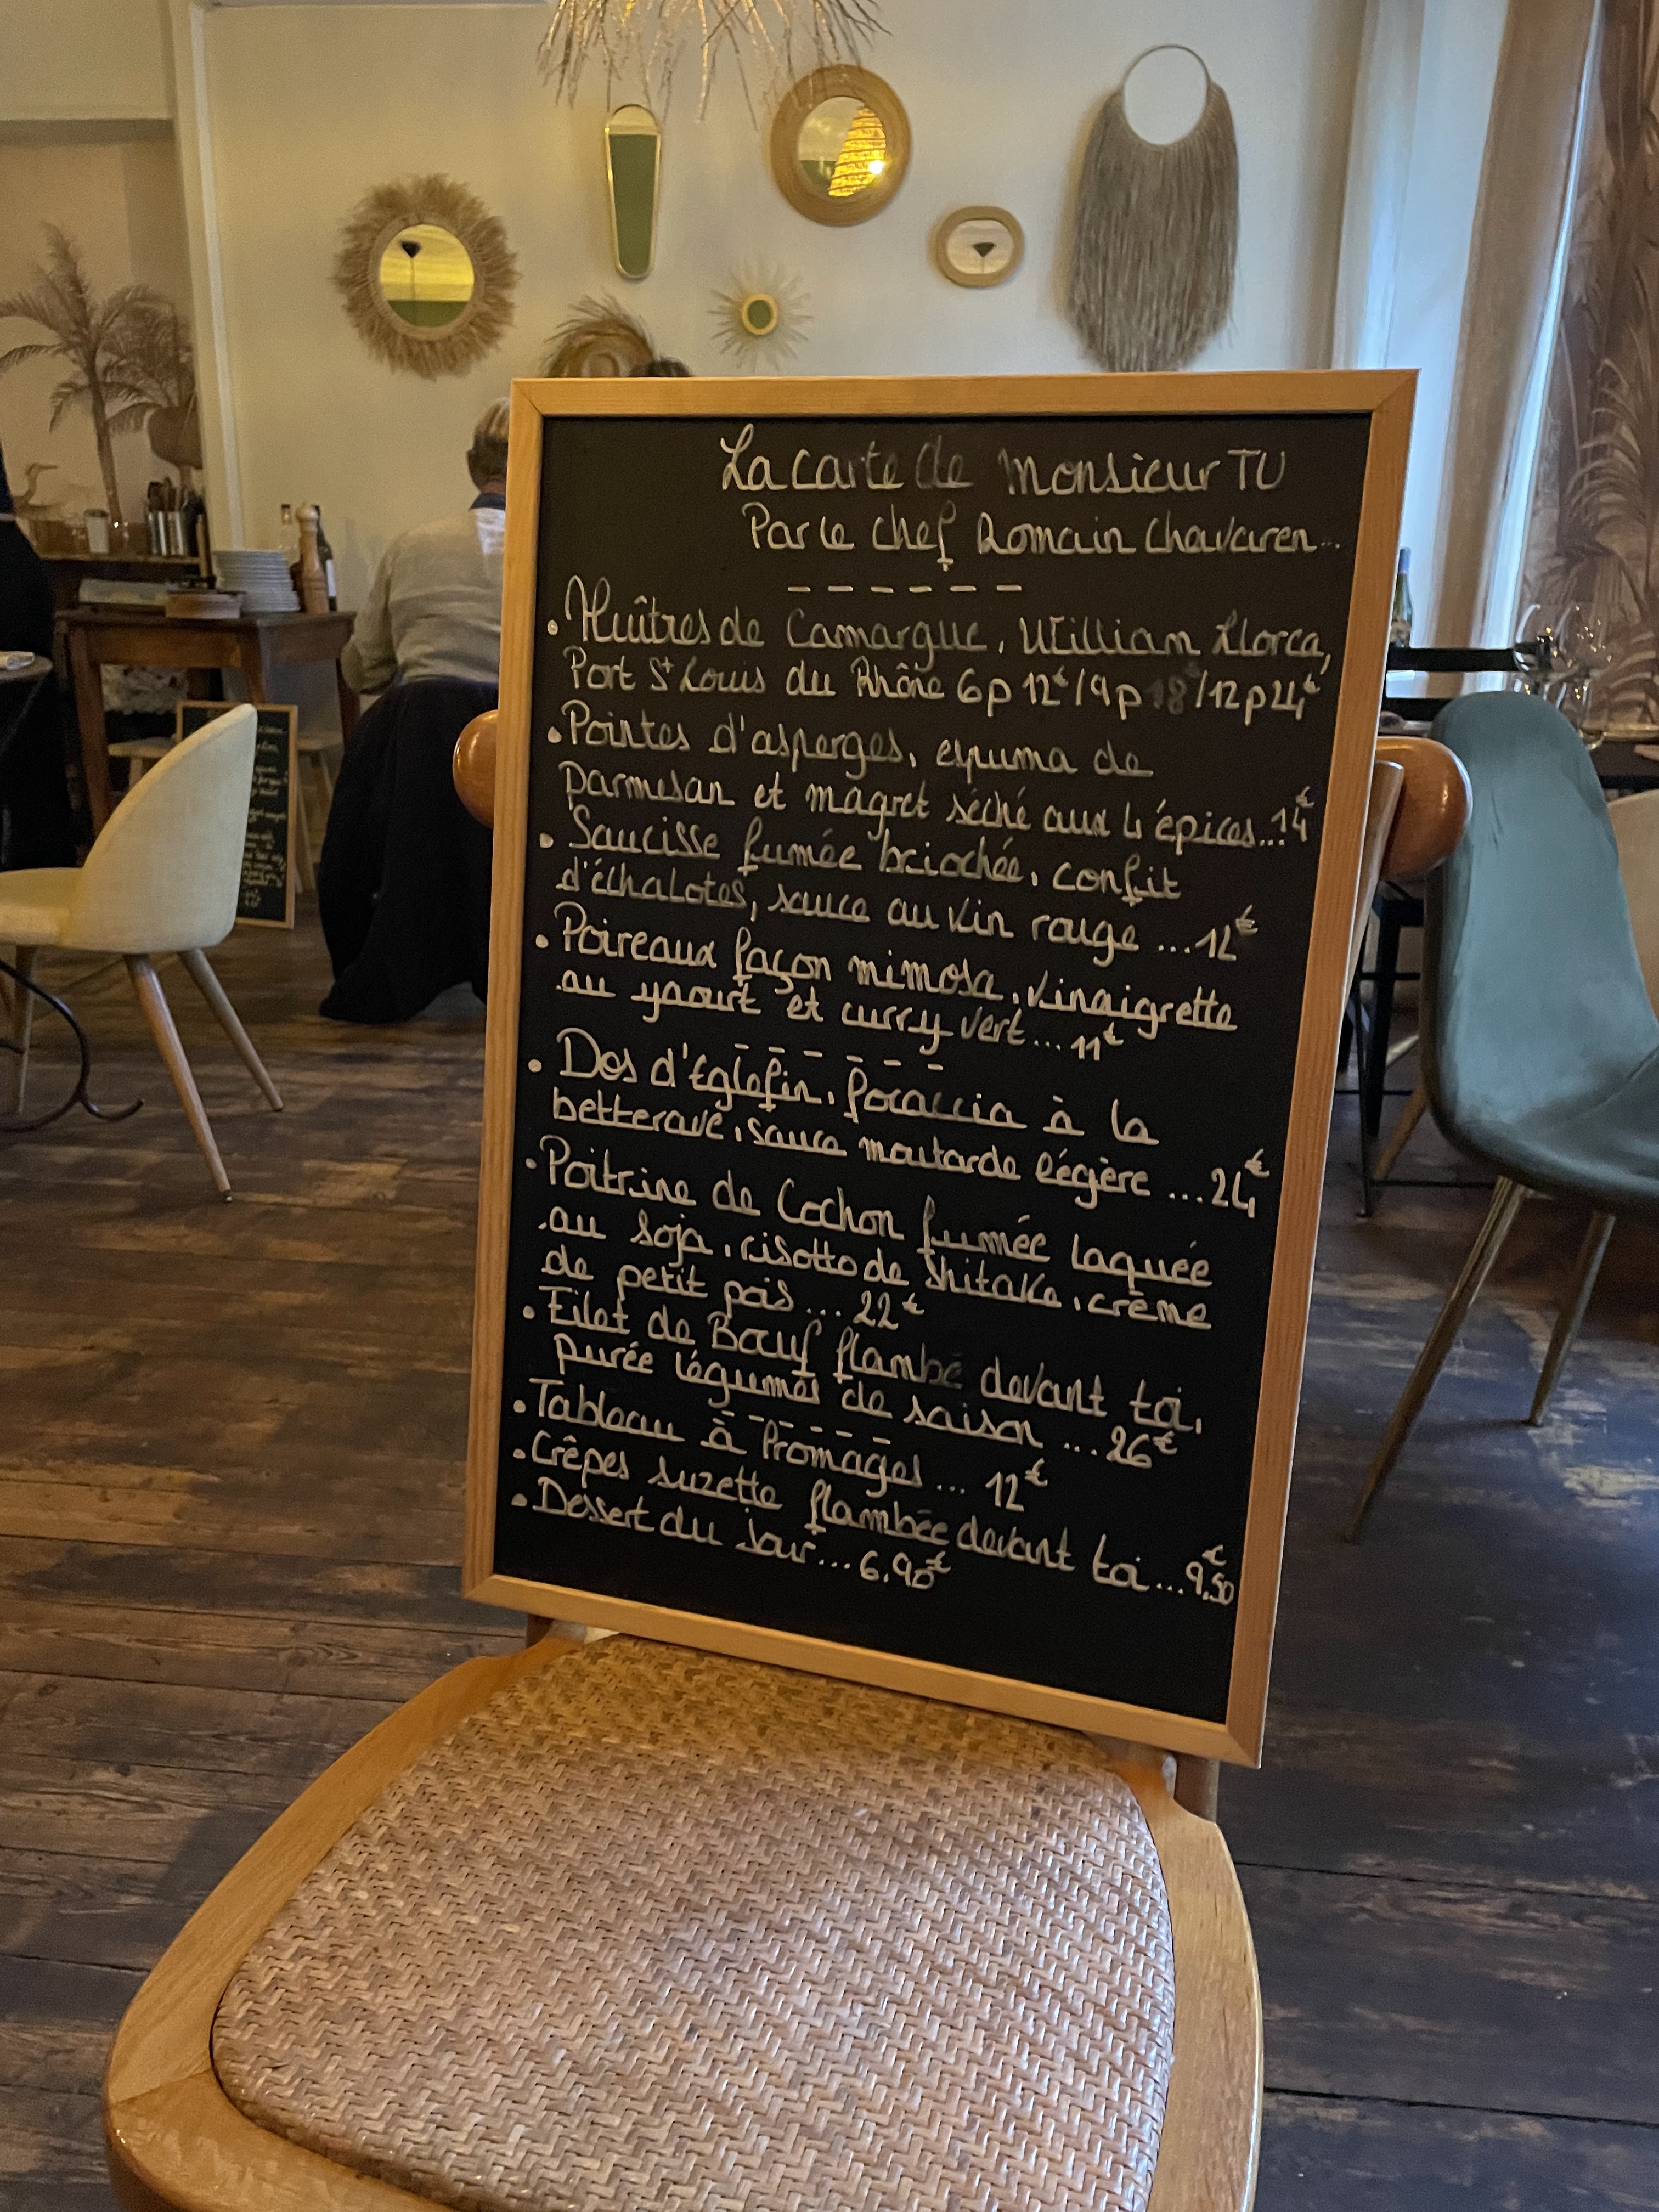 La carte de Monsieur TU
Par le chef Romain Chavaren...
------
• Huîtres de Camargue, William Llorca,
Port St Louis du Rhône 6p 12€/9p 18€/12p 24€
• Pointes d'asperges, espuma de
parmesan et magret séché aux 4 épices...14€
• Saucisse fumée briochée, confit
d'échalotes, sauce au vin rouge ...12€
• Poireaux façon mimosa, vinaigrette
au yaourt et curry vert... 11€
------
• Dos d'Eglefin, focaccia à la
betterave, sauce moutarde légère ...24€
• Poitrine de Cochon fumée laquée
au soja, risotto de shitake, crème
de petit pois... 22€
• Filet de Bœuf flambé devant toi,
purée légumes de saison ...26€
------
• Tableau à fromages... 12€
• Crêpes suzette flambée devant toi...9.50€
• Dessert du jour...6.90€